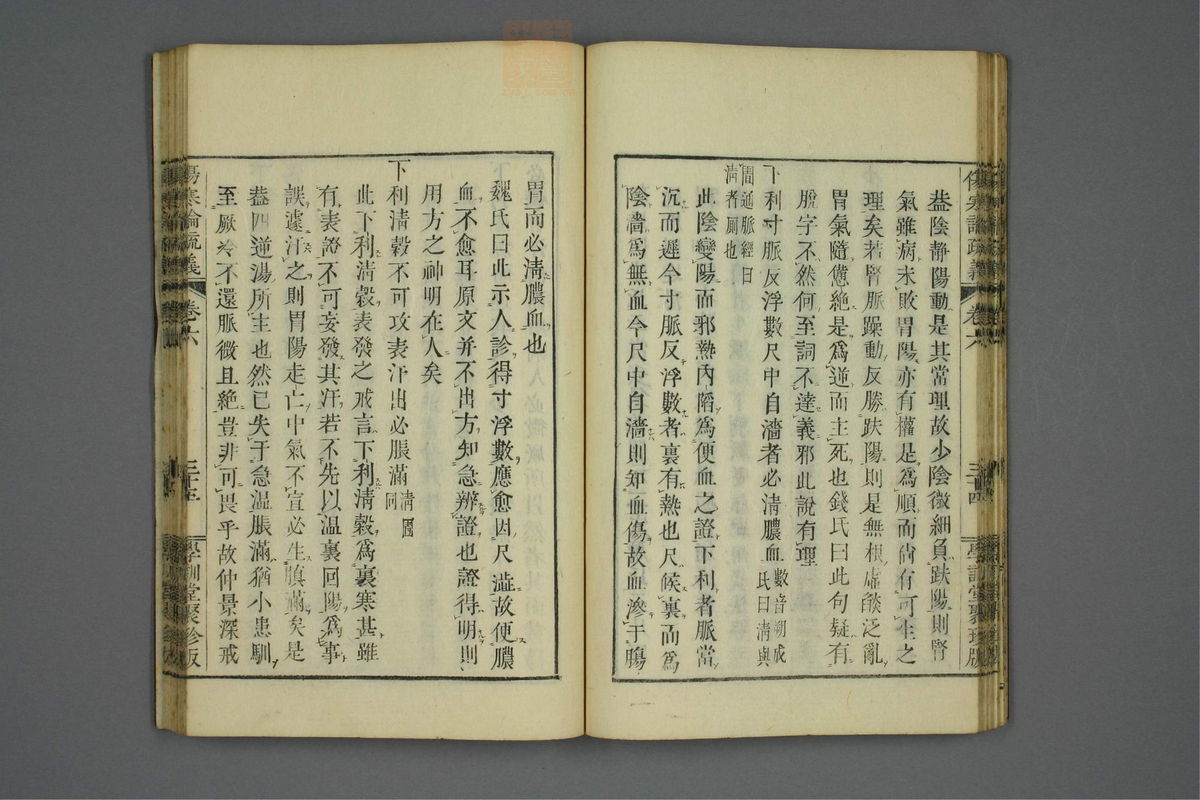 傷寒論疏義 卷六 三十四 學訓堂聚珍版
葢陰静陽動是其常理故少陰微細負趺陽則腎
氣雖病未敗胃陽亦有權是爲順而尚有可生之
理矣若腎脈躁動反勝趺陽則是無根虛燄泛亂
胃氣隨憊絶是爲逆而主死也錢氏曰此句疑有
脫字不然何至詞不達義邪此說有理
下利寸脈反浮數尺中自濇者必清膿血 數音朔成
氏曰清與
圊通脈經曰
清者厠也
此陰變陽而邪熱內陷爲便血之證下利者脈當
沉而遲今寸脈反浮數者裏有熱也尺候裏而爲
陰濇爲無血今尺中自濇則知血傷故血滲于腸
胃而必清膿血也
魏氏曰此示人診得寸浮數應愈因尺濇故便膿
血不愈耳原文并不出方知急辨證也證得明則
用方之神明在人矣
下利清穀不可攻表汗出必脹滿 清圊
同
此下利清穀表發之戒言下利清穀爲裏寒甚雖
有表證不可妄發其汗若不先以温裏回陽爲事
誤遽汗之則胃陽走亡中氣不宣必生䐜滿矣是
葢四逆湯所主也然已失于急温脹滿猶小患馴
至厥冷不還脈微且絶豈非可畏乎故仲景深戒
傷寒論疏義 卷六 三十五 學訓堂聚珍版